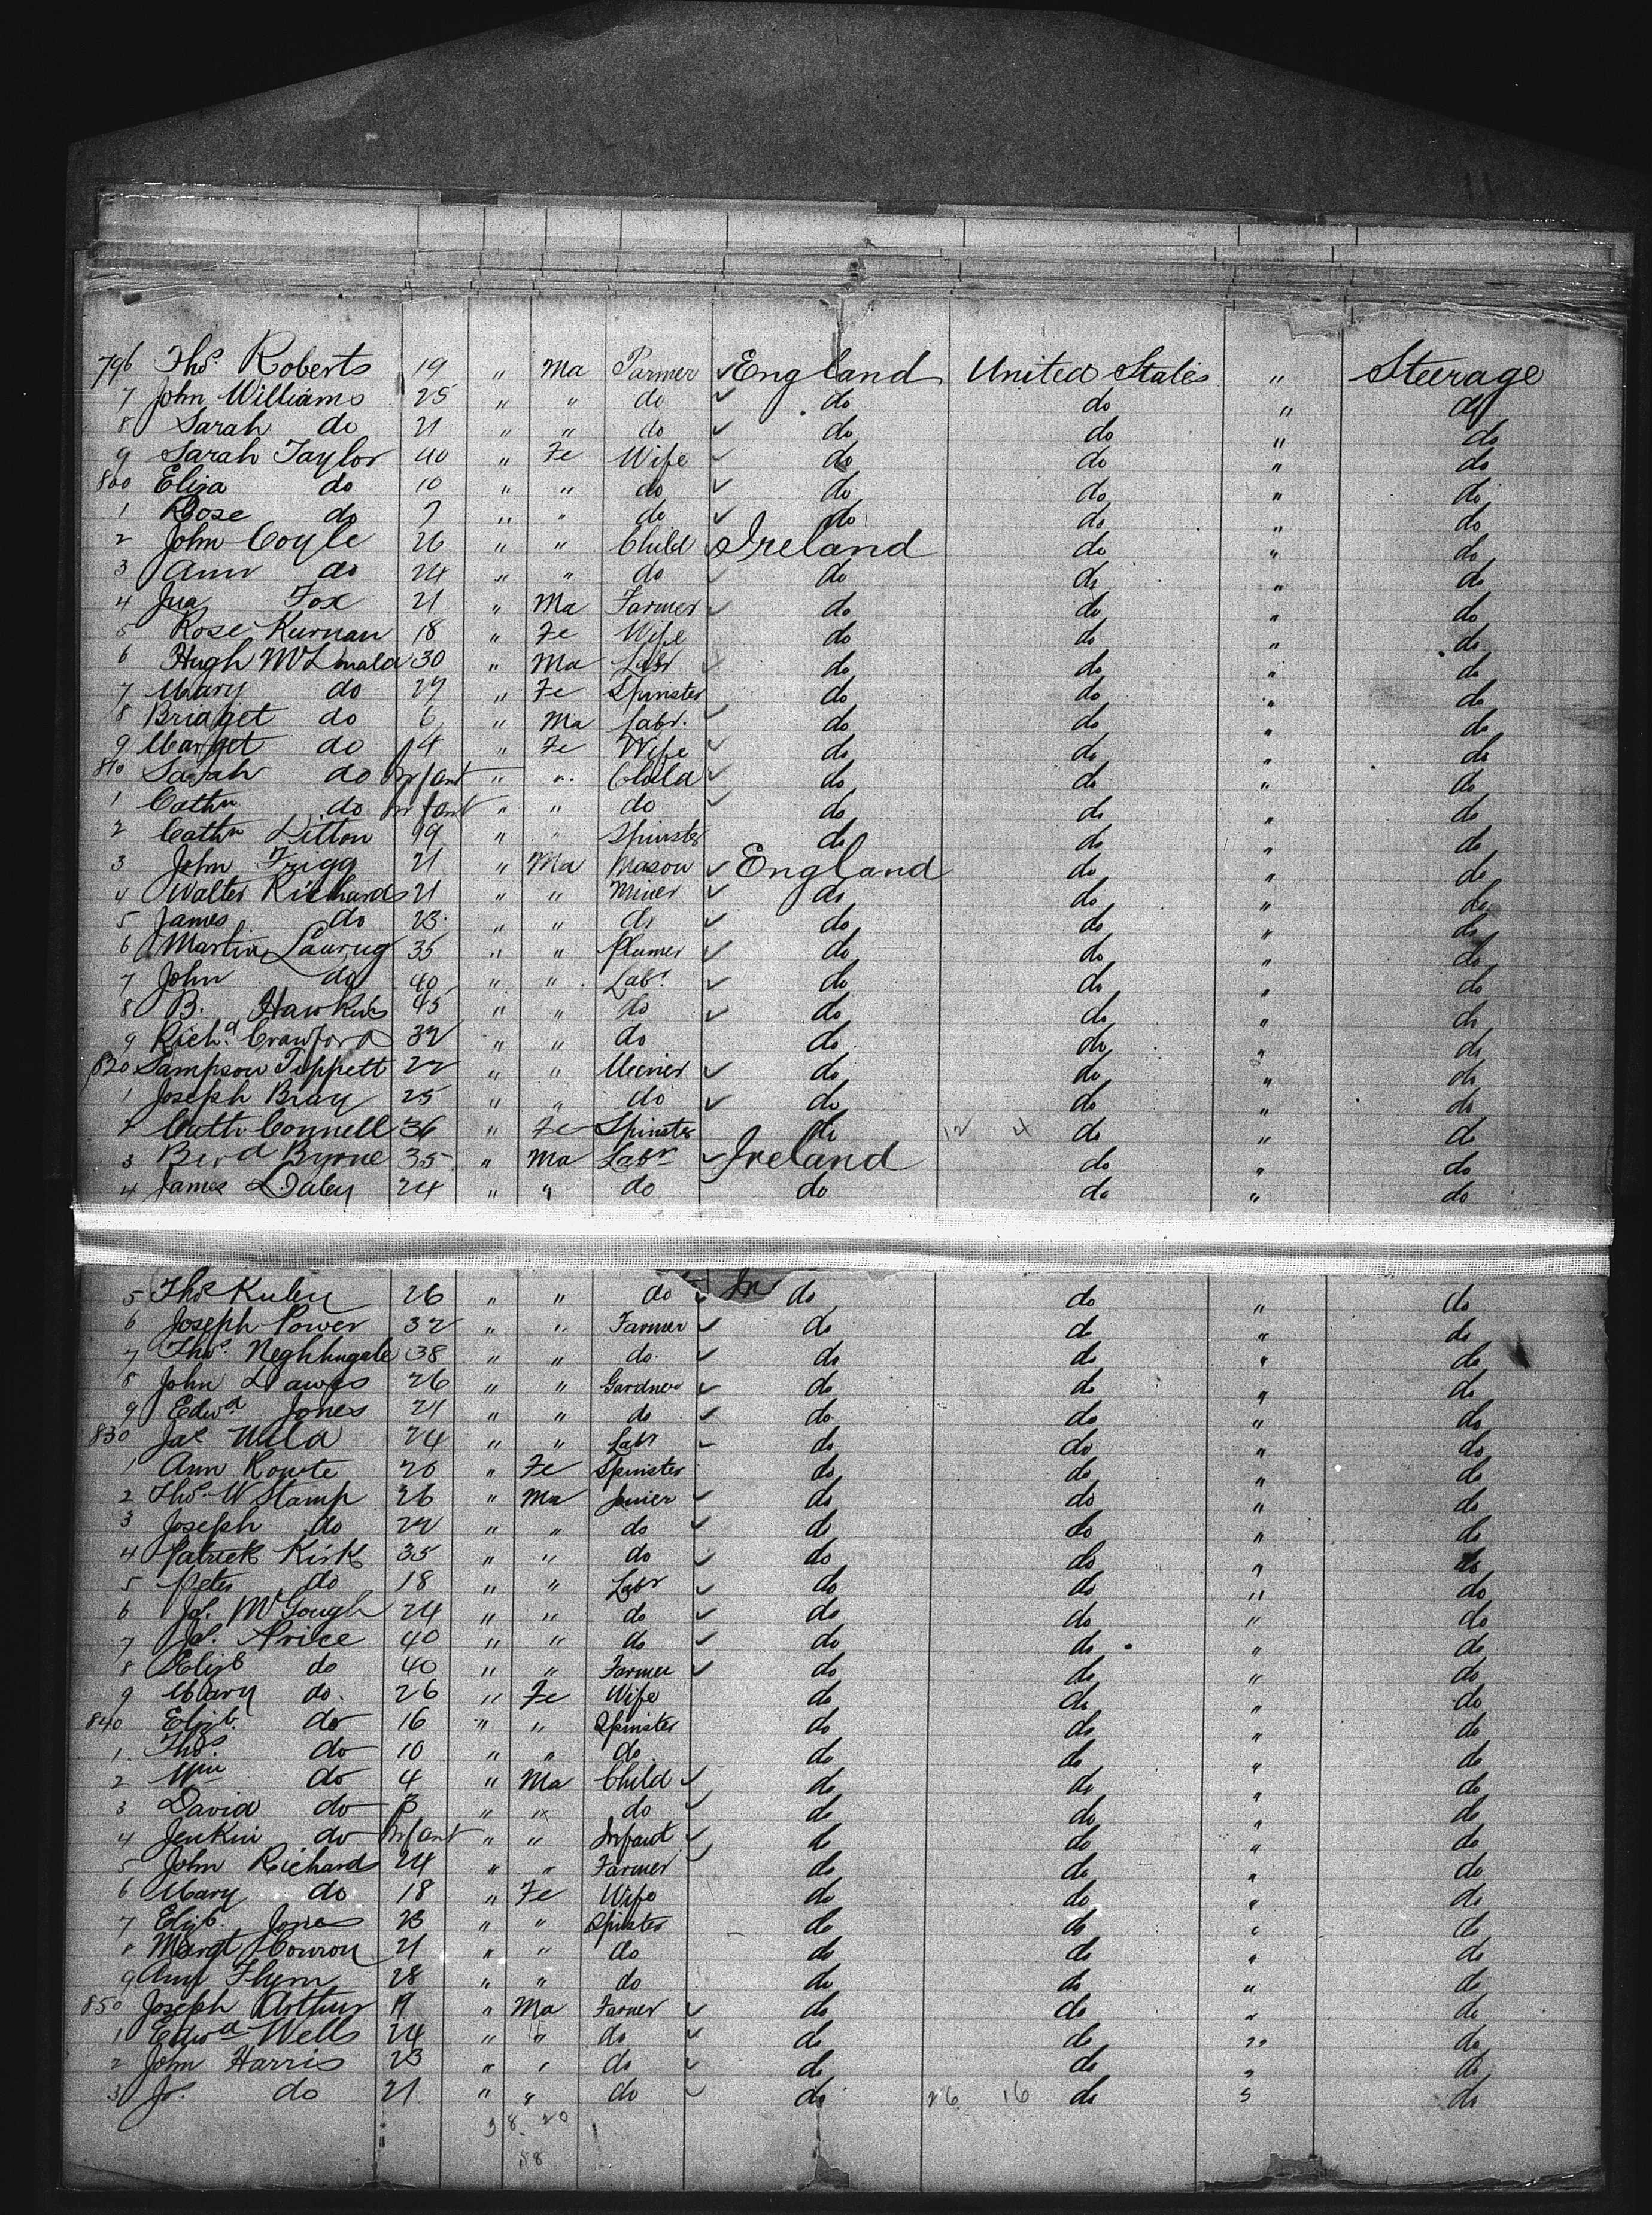 796 Thos. Roberts 19 " Ma Farmer ✓ England United States " Steerage
7 John Williams 25 " " do ✓ do do " do
8 Sarah do 21 " " do ✓ do do " do
9 Sarah Taylor 40 " Fe Wife ✓ do do " do
800 Eliza do 10 " " do ✓ do do " do
1 Rose do 7 " " do ✓ do do " do
2 John Coyle 26 " " Child ✓ Ireland do " do
3 Ann do 24 " " do ✓ do do " do
4 Fox 21 " Ma Farmer ✓ do do " do
5 Rose Kurnan 18 " Fe Wife do do " do
6 Hugh 30 " Ma Labr ✓ do do " do
7 Mary do 27 " Fe Spinster do do " do
8 Bridget do 6 " Ma Labr. ✓ do do " do
9 Marget do 4 " Fe Wife ✓ do do " do
810 Sarah do Infant " " Child ✓ do do " do
1 Cathn do Infant " " do ✓ do do " do
2 Cathn Ditton 19 " " Spinster do do " do
3 John Frigg 21 " Ma Mason ✓ England do " do
4 Walter Richards 21 " " Miner ✓ do do " do
5 James do 23 " " do ✓ do do " do
6 Martin 35 " " Plumer ✓ do do " do
7 John do 40 " " Labr ✓ do do " do
8 B. Hawkins 45 " " do ✓ do do " do
9 Richd. Crawford 32 " " do do do " do
820 Sampson Tippett 22 " " ✓ do do " do
1 Joseph Bray 25 " " do ✓ do do " do
2 Cathn Connell 36 " Fe Spinster do 12 4 do " do
3 Byrne 35 " Ma Labr ✓ Ireland do " do
4 James Daley 24 " " do do do " do
5 Thos 26 " " do ✓ do do " do
6 Joseph Power 32 " " Farmer ✓ do do " do
7 Thos. Neghtingale 38 " " do ✓ do do " do
8 John Dawes 26 " " Gardner ✓ do do " do
9 Edwd Jones 21 " " do ✓ do do " do
830 Jas Wild 24 " " Labr ✓ do do " do
1 Ann 20 " Fe Spinster do do " do
2 Thos. W Stamp 26 " Ma ✓ do do " do
3 Joseph do 22 " " do ✓ do do " do
4 Patrick Kirk 35 " " do ✓ do do " do
5 Peter do 18 " " Labr ✓ do do " do
6 Jos. McGough 24 " " do ✓ do do " do
7 Price 40 " " do ✓ do do " do
8 Elizb do 40 " " Farmer ✓ do do " do
9 Mary do. 26 " Fe Wife do do " do
840 Elizb. do 16 " " Spinster do do " do
1 Thos. do 10 " " do do do " do
2 Wm do 4 " Ma Child ✓ do do " do
3 David do 3 " " do ✓ do do " do
4 Jenkin do Infant " " Infant ✓ do do " do
5 John Richards 24 " " Farmer ✓ do do " do
6 Mary do 18 " Fe Wife do do " do
7 Elizb. Jones 23 " " Spinster do do " do
8 Margt 21 " " do do do " do
9 Ann Flynn 28 " " do do do " do
850 Joseph Arthur 19 " Ma Farmer ✓ do do " do
1 Edwd Wells 24 " " do ✓ do do " do
2 John Harris 23 " " do ✓ do do " do
3 Jr. do 21 " " do ✓ do 26 16 do " do
38 20
58